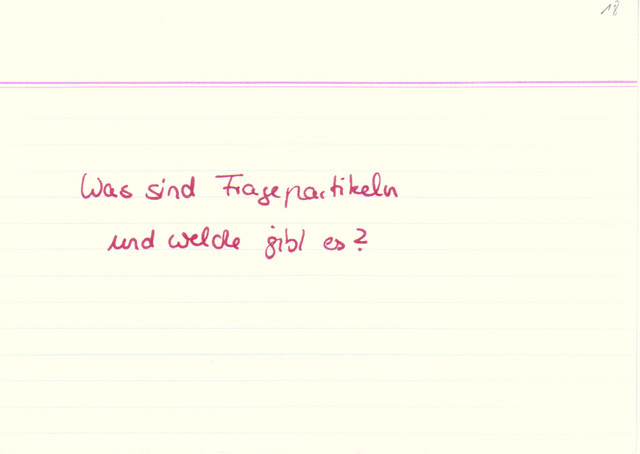 18
Was sind Fragepartikeln
und welche gibt es?